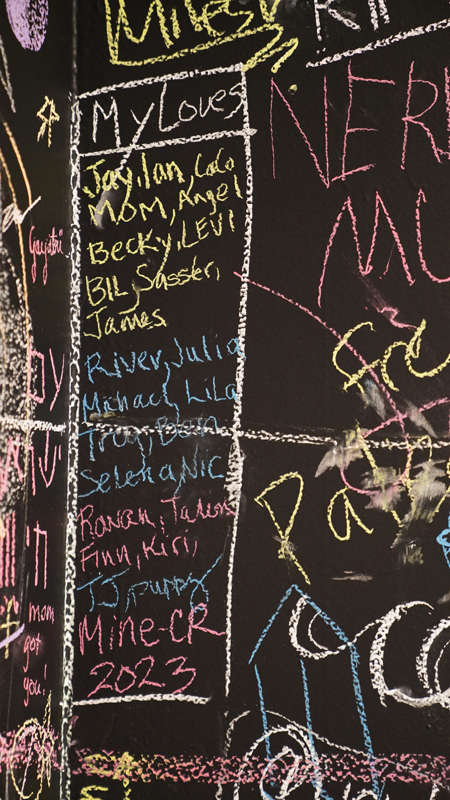 Miles
My Loves
Jay, Ian, CoCo
MOM, Angel
Becky, LEVI
BIL, Sasser,
James
River, Julia
Michael, Lila
Selena, Nic
Rowan,
Finn, Kiri,
TJ, puppy
Mine-CR
2023
NER
Gayatri
mom
got
you!